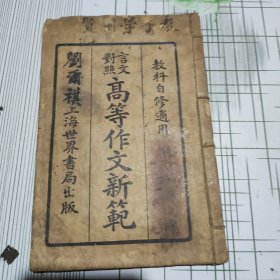 教科自修適用
言文
對照
高等作文新範
上海世界書局出版